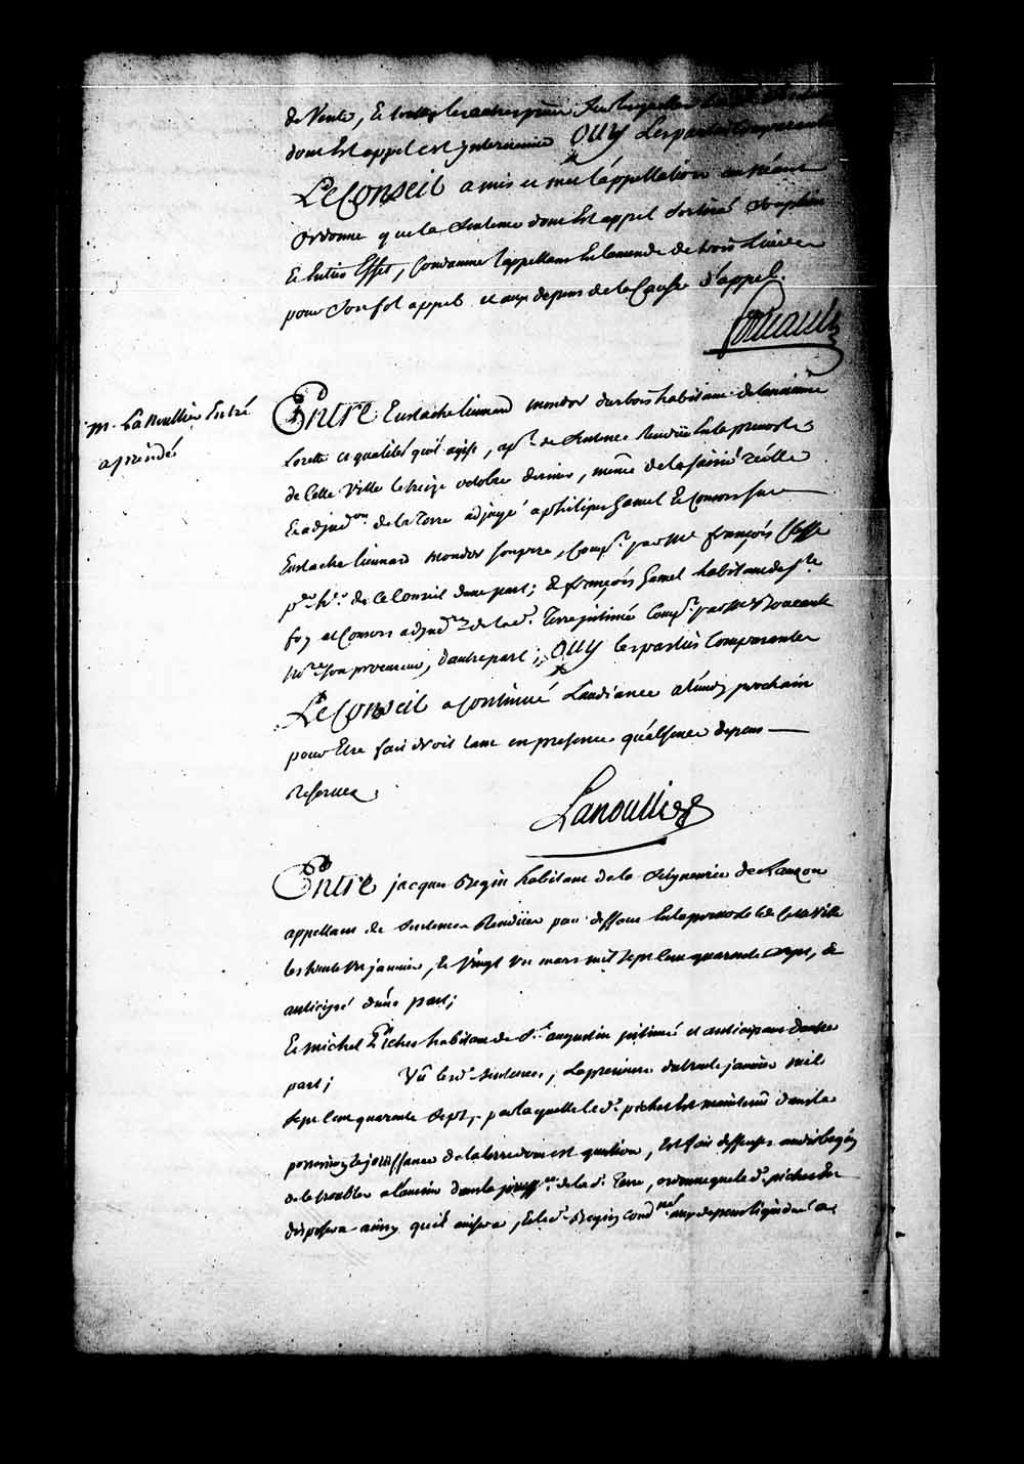 de Vente, Et
dont Est appel est Intervenüe OUY Les parties Comparantes
LE CONSEIL a mis et met L'appellation au Néant
Ordonne que la Sentence dont Est appel Sortira Son plein
Et Entier Effet, Condamne L'appellant En L'amende de trois Livres
pour Son fol appel et aux depens de la Cause d'appel.
M. La Noullier Entré
aprindés
ENTRE Eustache Lienard Mondor Dubois habitant de Lancienne
Lorette Es qualités qu'il agist, apt. de Sentence Rendüe En la prevosté
de Cette Ville le treize octobre dernier, même de la Saisie réelle
Et adjudon. de la Terre adjugé a philipe hamel Et Consors Sur
Eustache Lienard Mondor Son pere, Compt. par Me françois
pr. hr. de Ce Conseil d'une part; Et françois hamel habitant de Ste
foy et Consors adjudres de lad. Terre intimé Compt. par Me
Nore Son procureur, d'autre part; OUY les parties Comparantes
LE CONSEIL a Continué L'audiance a Lundy prochain
pour Etre fait droit tant en presence qu'absence depens
Reservez.
Lanoullier
ENTRE jacques Begin habitant de la Seigneurie de Lauzon
appellant de Sentences Rendües par deffaut En la prevosté de Cette Ville
les trente Un janvier, Et Vingt un mars mil Sept Cent quarante Sept, Et
anticipé d'une part;
Et Michel Picher habitant de St. augustin intimé et anticipant d'autre
part; Vû lesd. Sentences, La premiere du trente janvier mil
Sept Cent quarante Sept, par laquelle led. picher Est maintenu dans la
possession Et joüissance de la terre dont est question, Est fait deffenses aud. Begin
de le troubler a l'avenir dans la jouissce. de lad. Terre, ordonne que led. picher En
disposera ainsy qu'il avisera, Et led. Begin Condné aux depens liquidés a